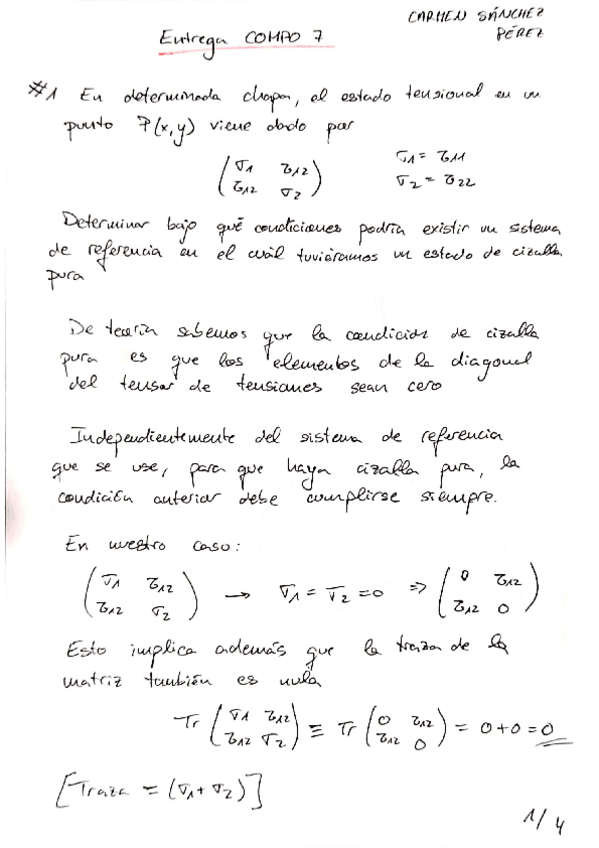 CARMEN SÁNCHEZ
PÉREZ
Entrega COMPO 7
#1 En determinada chapa, el estado tensional en un
punto P(x,y) viene dado por
(σ1 τ12
τ12 σ2)
σ1 = τ11
σ2 = τ22
Determinar bajo qué condiciones podría existir un sistema
de referencia en el cuál tuviéramos un estado de cizalla
pura
De teoría sabemos que la condición de cizalla
pura es que los elementos de la diagonal
del tensor de tensiones sean cero
Independientemente del sistema de referencia
que se use, para que haya cizalla pura, la
condición anterior debe cumplirse siempre.
En nuestro caso:
(σ1 τ12
τ12 σ2) → σ1 = σ2 = 0 ⇒ (0 τ12
τ12 0)
Esto implica además que la traza de la
matriz también es nula
Tr (σ1 τ12
τ12 σ2) ≡ Tr (0 τ12
τ12 0) = 0+0 = 0
[Traza = (σ1 + σ2)]
1/4